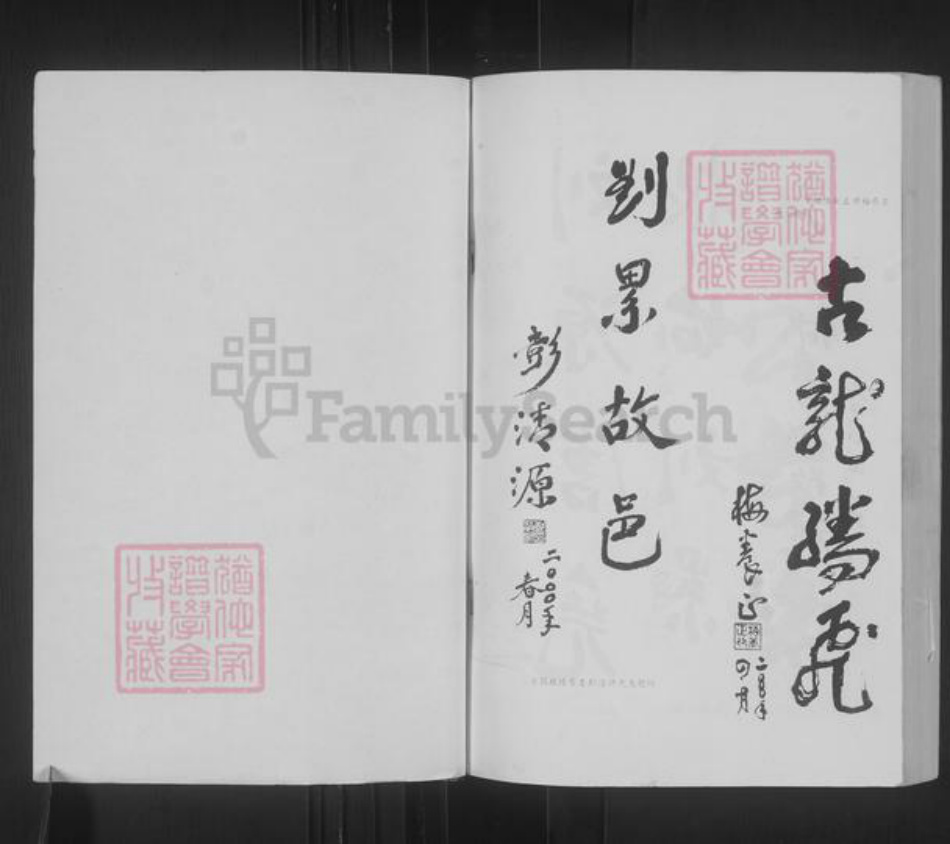 古龍騰飛
梅養正
二〇〇〇年
四月
劉累故邑
彭清源
二〇〇〇年
春月
猶他家
譜學會
收藏
猶他家
譜學會
收藏
FamilySearch